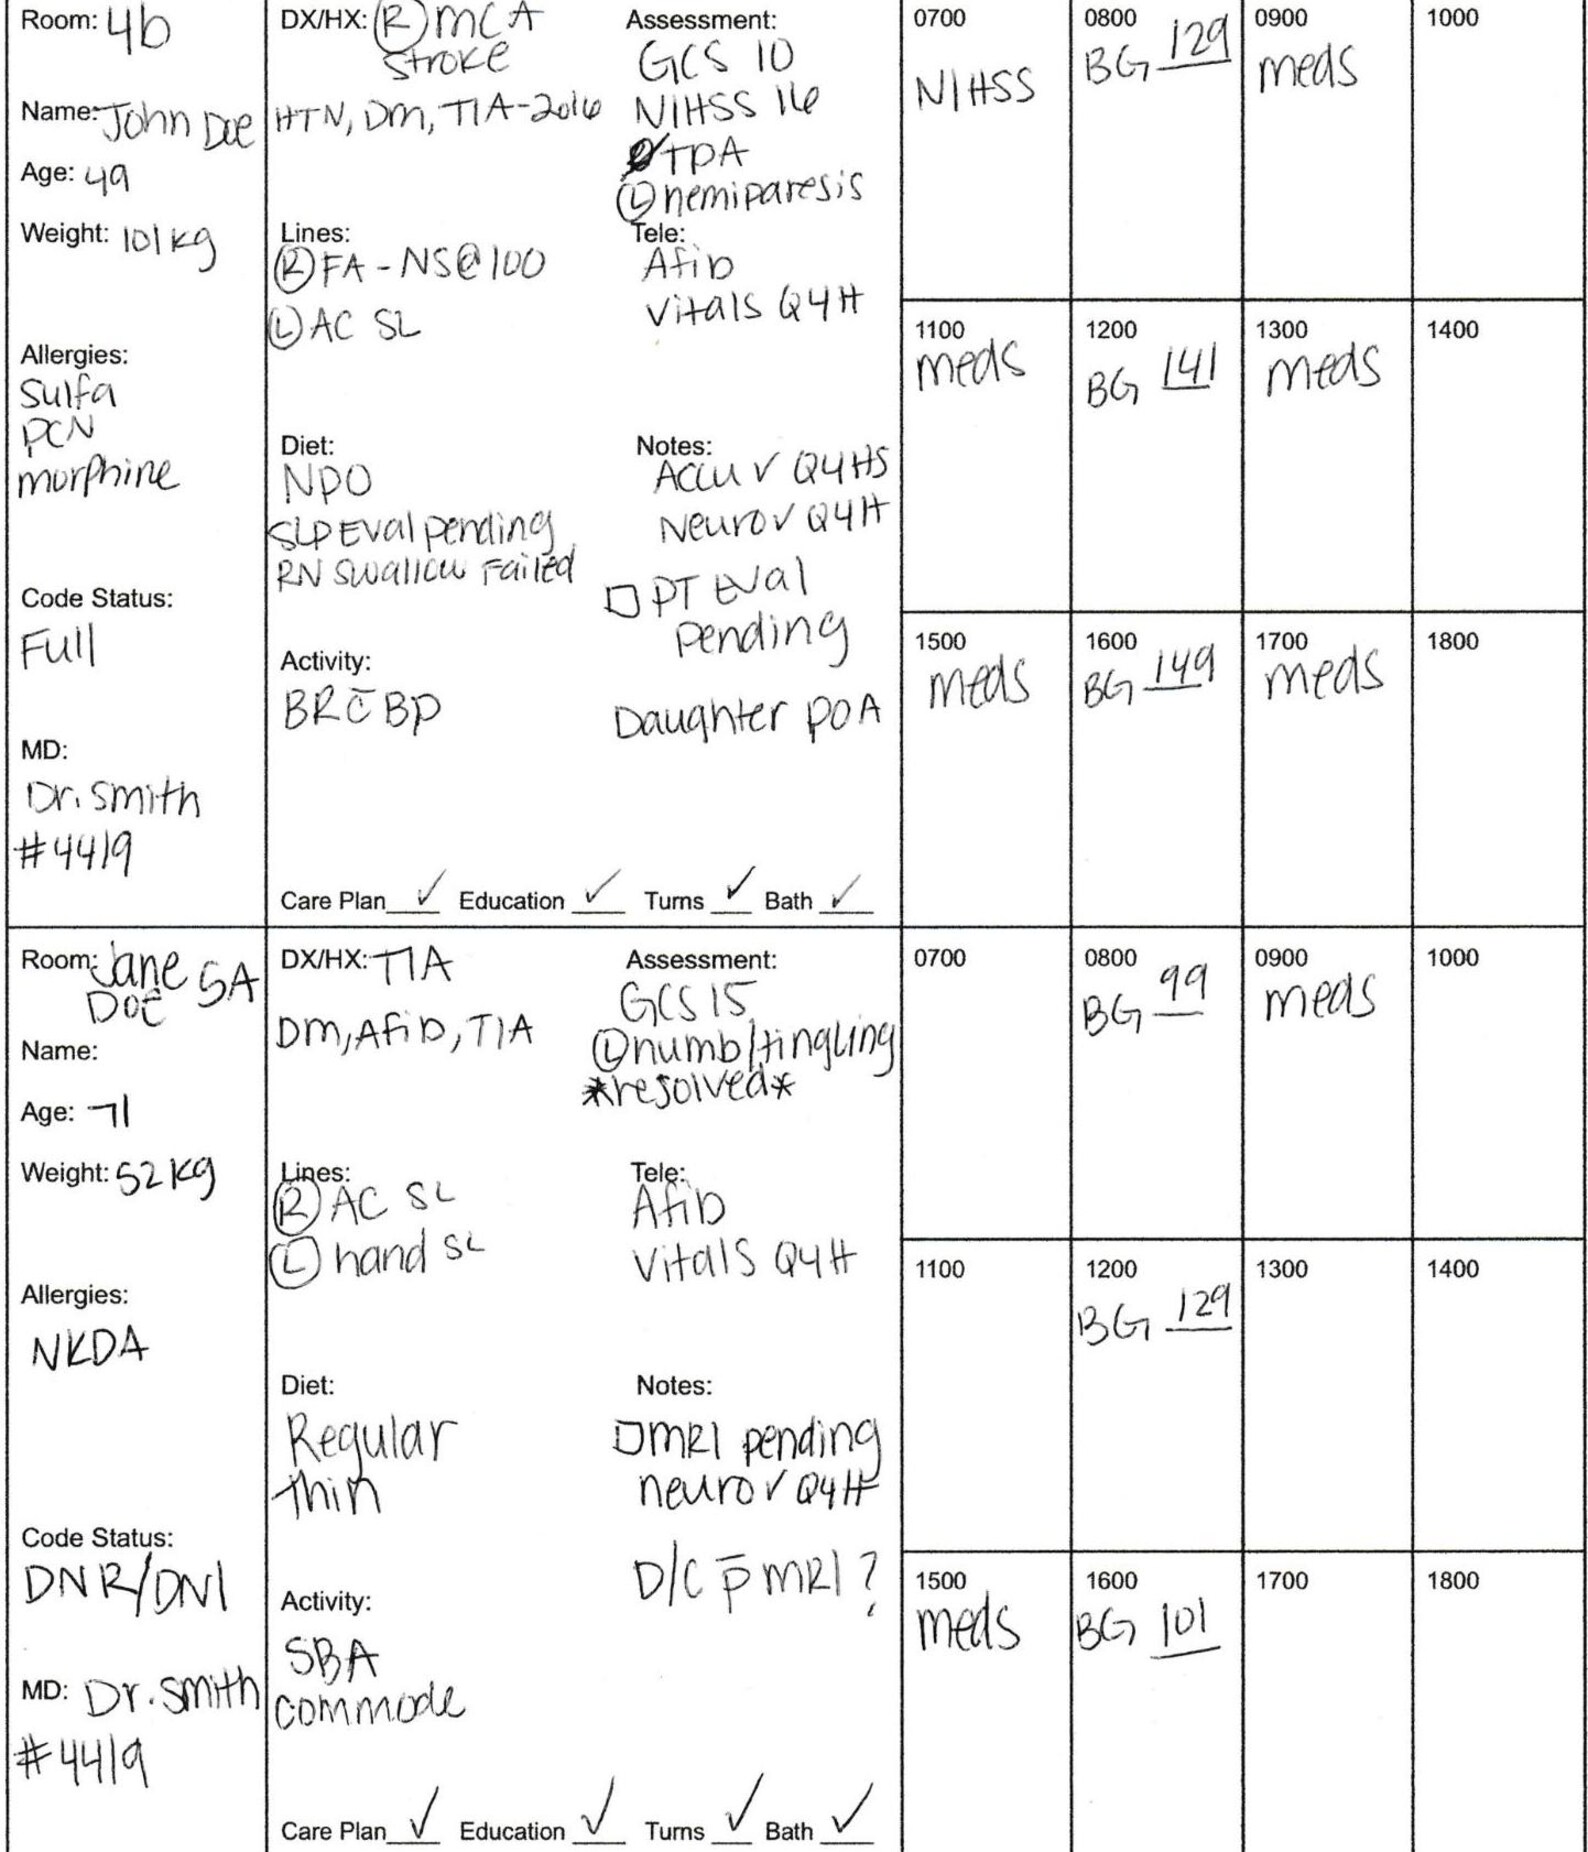 Room: 4b
Name: John Doe
Age: 49
Weight: 101kg
Allergies:
Sulfa
PCN
morphine
Code Status:
Full
MD:
Dr. Smith
#4419
DX/HX: Ⓡ MCA
Stroke
HTN, DM, TIA-2016
Lines:
Ⓡ FA - NS@100
Ⓛ AC SL
Diet:
NPO
SLP Eval pending
RN Swallow Failed
Activity:
BR c̄ BP
Assessment:
GCS 10
NIHSS 16
TPA
Ⓛ hemiparesis
Tele:
Afib
Vitals Q4H
Notes:
Accu ✓ Q4HS
Neuro ✓ Q4H
☐ PT Eval
Pending
Daughter POA
Care Plan ✓ Education ✓ Turns ✓ Bath ✓
0700 0800 0900 1000
NIHSS BG 129 meds
1100 1200 1300 1400
meds BG 141 meds
1500 1600 1700 1800
meds BG 149 meds
Room: Jane
Doe 5A
Name:
Age: 71
Weight: 52kg
Allergies:
NKDA
Code Status:
DNR/DNI
MD: Dr. Smith
#4419
DX/HX: TIA
DM, Afib, TIA
Lines:
Ⓡ AC SL
Ⓛ hand SL
Diet:
Regular
thin
Activity:
SBA
commode
Assessment:
GCS 15
Ⓛ numb/tingling
*resolved*
Tele:
Afib
Vitals Q4H
Notes:
☐ MRI pending
neuro ✓ Q4H
D/C p̄ MRI?
Care Plan ✓ Education ✓ Turns ✓ Bath ✓
0700 0800 0900 1000
BG 99 meds
1100 1200 1300 1400
BG 129
1500 1600 1700 1800
meds BG 101